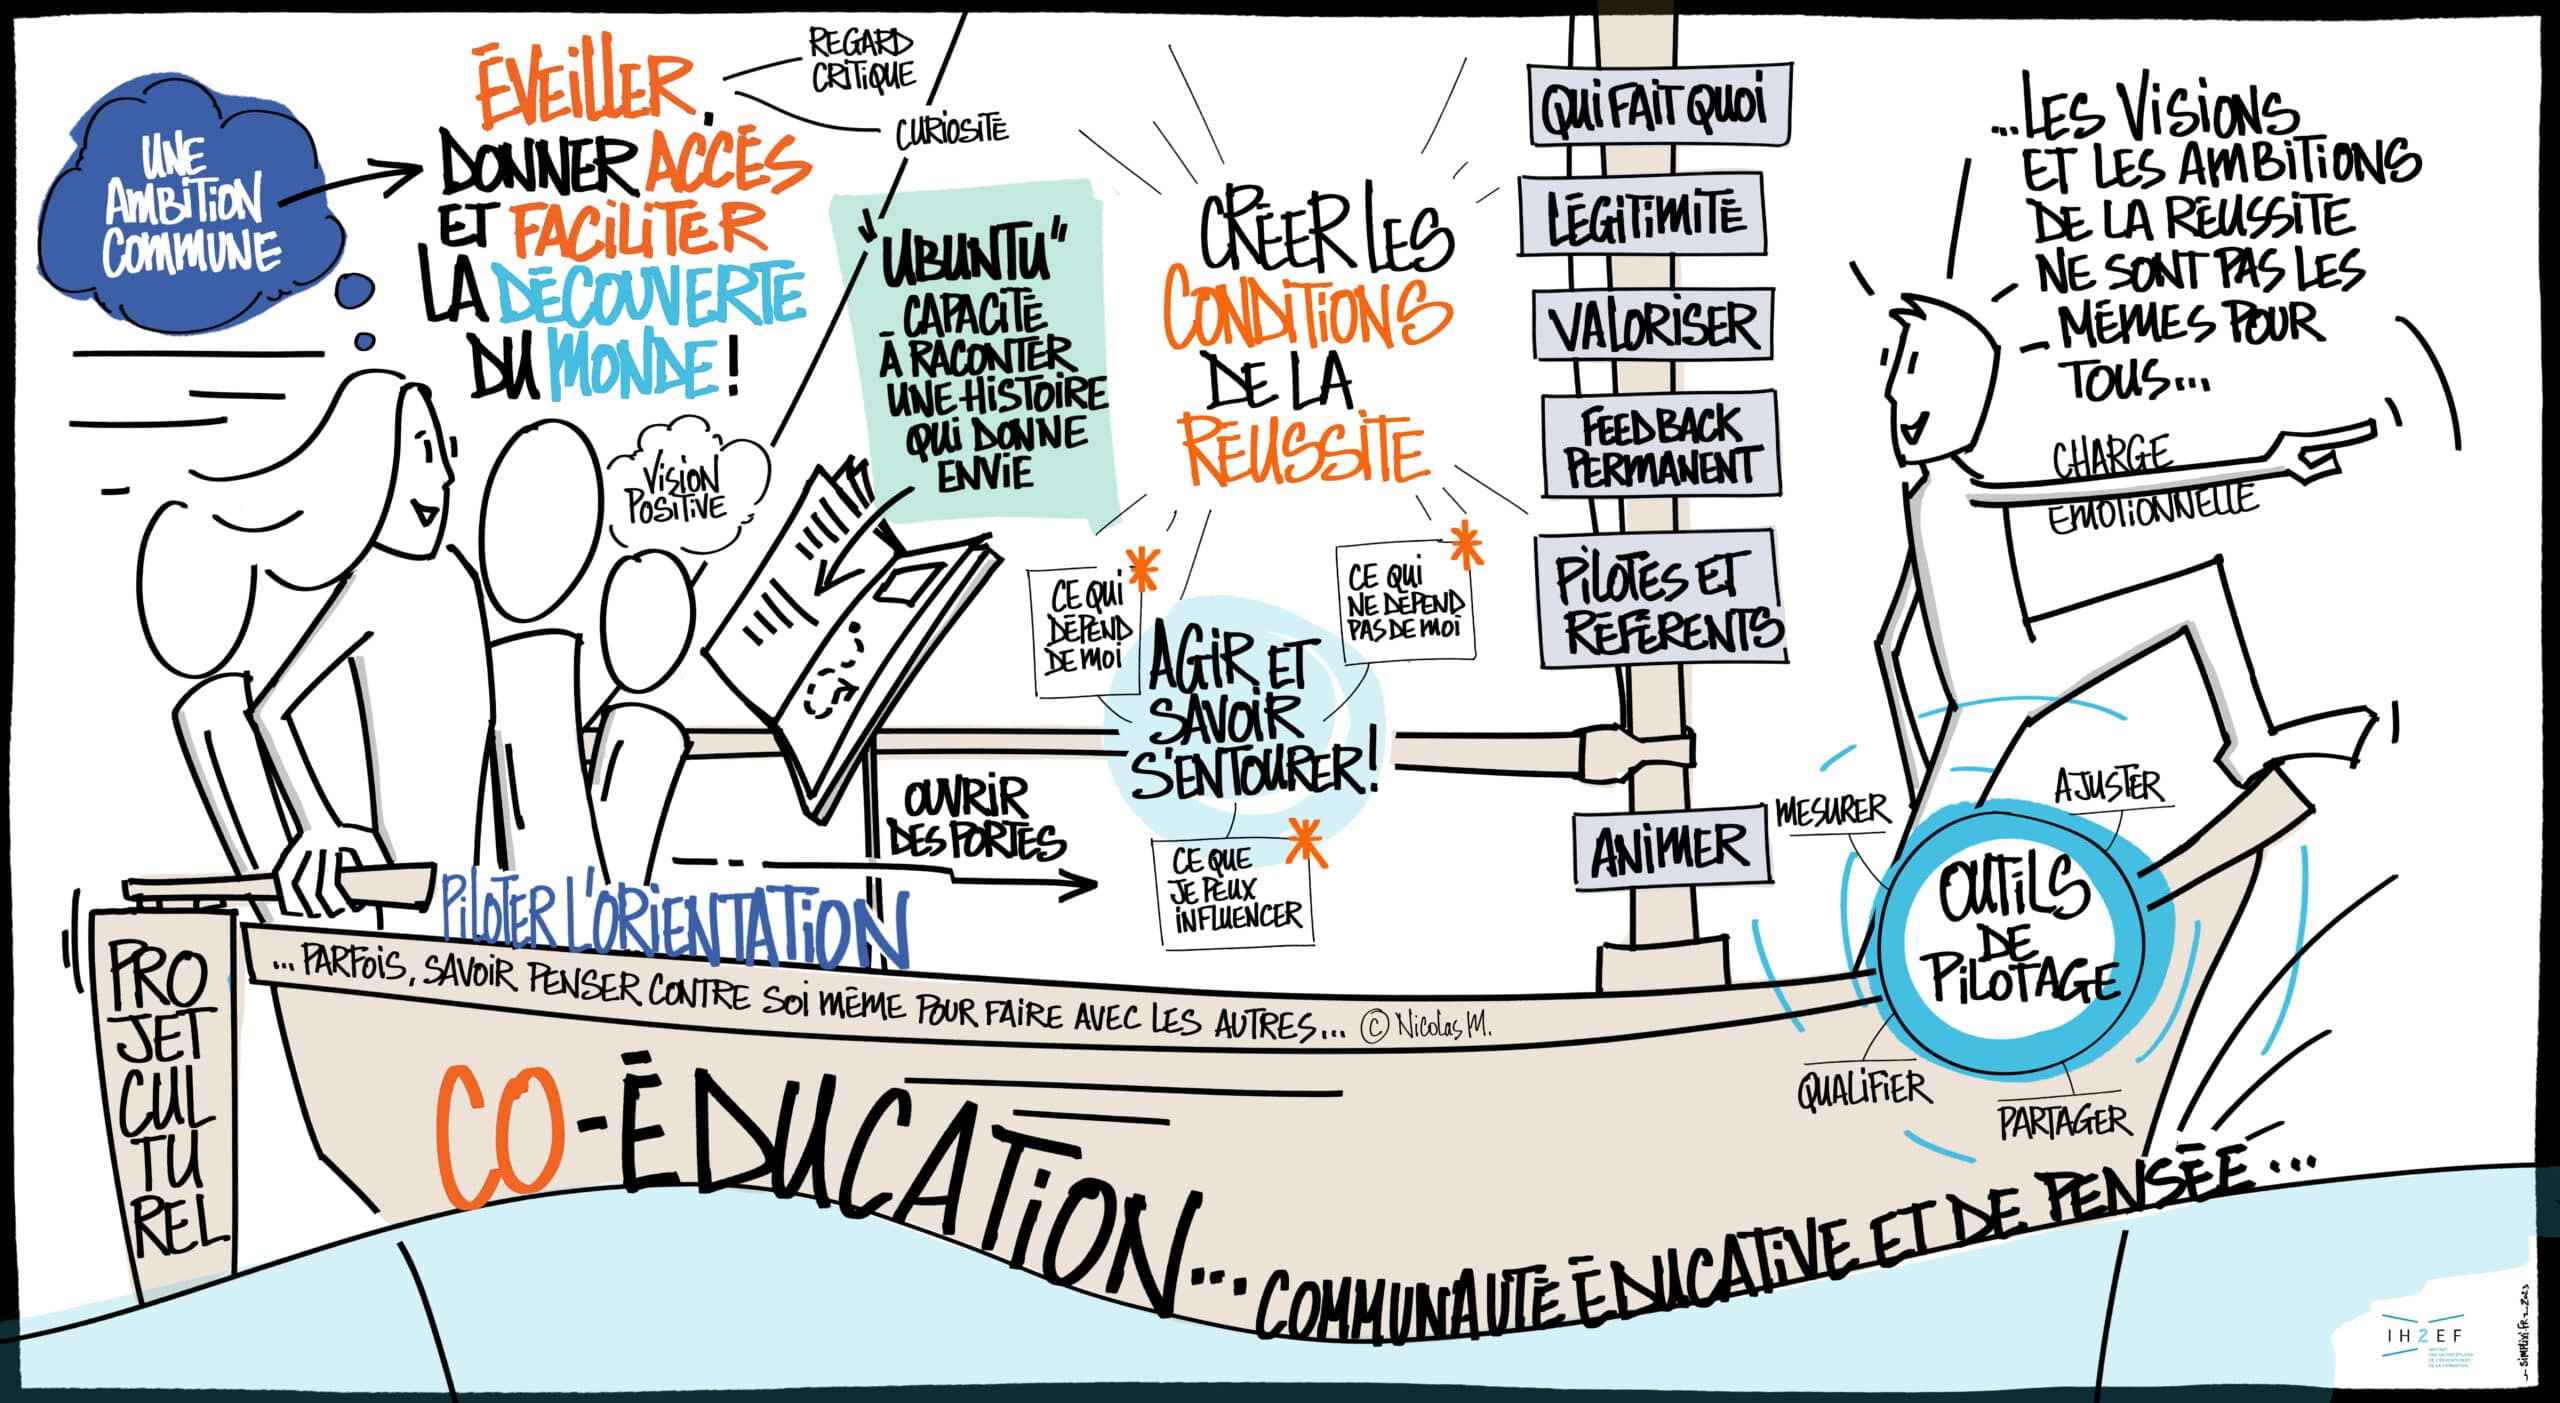 UNE
AMBITION
COMMUNE
ÉVEILLER,
DONNER ACCÈS
ET FACILITER
LA DÉCOUVERTE
DU MONDE !
REGARD
CRITIQUE
CURIOSITÉ
VISION
POSITIVE
"UBUNTU"
CAPACITÉ
À RACONTER
UNE HISTOIRE
QUI DONNE
ENVIE
CRÉER LES
CONDITIONS
DE LA
RÉUSSITE
CE QUI
DÉPEND
DE MOI
CE QUI
NE DÉPEND
PAS DE MOI
AGIR ET
SAVOIR
S'ENTOURER !
CE QUE
JE PEUX
INFLUENCER
OUVRIR
DES PORTES
QUI FAIT QUOI
LÉGITIMITÉ
VALORISER
FEEDBACK
PERMANENT
PILOTES ET
RÉFÉRENTS
ANIMER
...LES VISIONS
ET LES AMBITIONS
DE LA RÉUSSITE
NE SONT PAS LES
MÊMES POUR
TOUS...
CHARGE
ÉMOTIONNELLE
MESURER
AJUSTER
OUTILS
DE
PILOTAGE
QUALIFIER
PARTAGER
PILOTER L'ORIENTATION
... PARFOIS, SAVOIR PENSER CONTRE SOI MÊME POUR FAIRE AVEC LES AUTRES... © Nicolas M.
PRO
JET
CUL
TU
REL
CO-ÉDUCATION...
COMMUNAUTÉ ÉDUCATIVE ET DE PENSÉE...
IH2EF
INSTITUT
DES HAUTES ÉTUDES
DE L'ÉDUCATION ET
DE LA FORMATION
SIMPLIXI.FR_2023